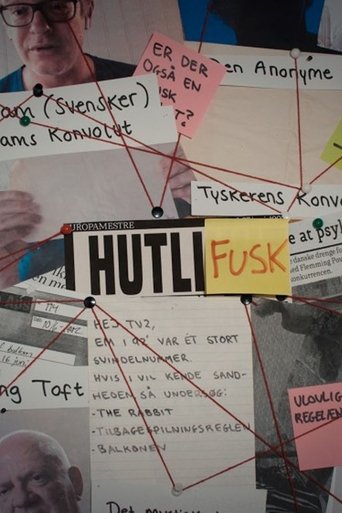 ER DER
OGSÅ EN
SK
T?
Den Anonyme
am (Svensker)
ams Konvolut
Tyskerens Konvo
UROPAMESTRE
HUTLI
FUSK
e at psyk
danske drenge
ed Flemming Pou
konkurrencen.
10/6-1992
HEJ TV2,
EM I 92' VAR ÉT STORT
SVINDELNUMMER.
HVIS I VIL KENDE SAND-
HEDEN SÅ UNDERSØG:
- THE RABBIT
- TILBAGESPILNINGSREGLEN
- BALKONEN
ng Toft
ULOVLIG
REGELÆN
Det